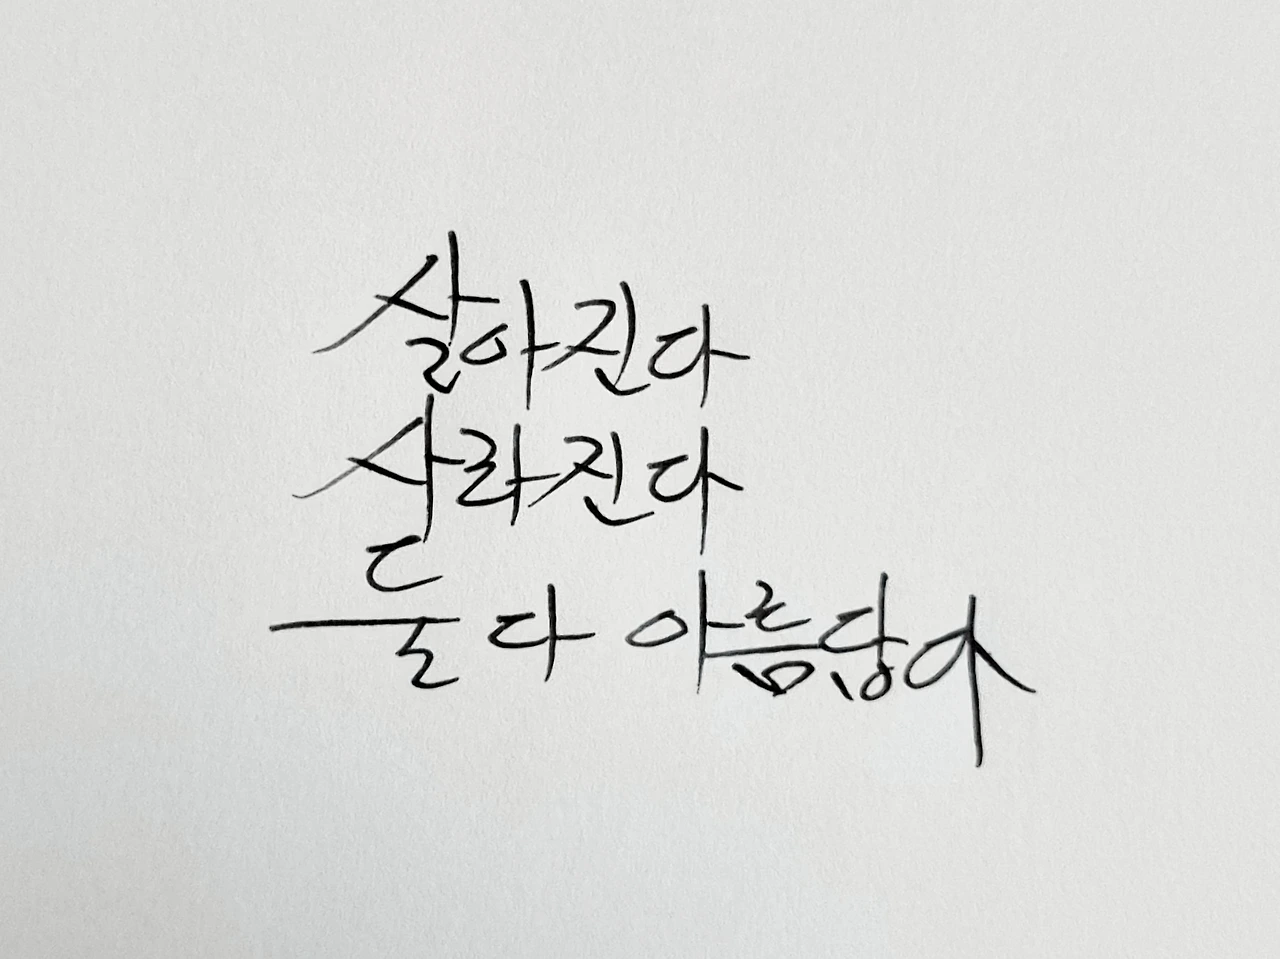 살아진다
사라진다
둘 다 아름답다